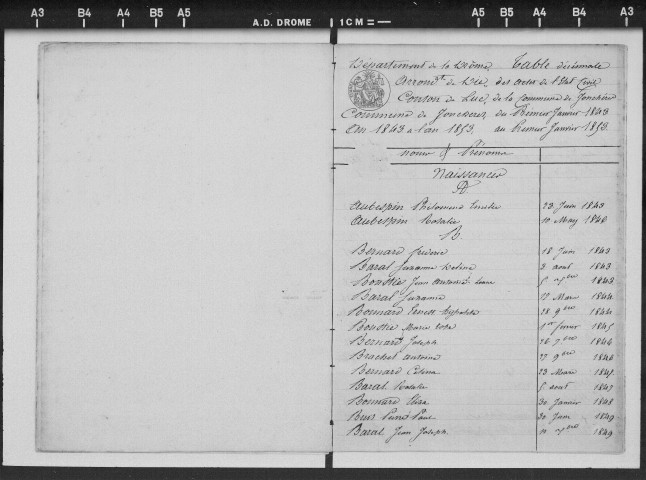 A3 B4 A4 B5 A5 A.D. DROME 1 CM = A5 B5 A4 B4 A3
Département de la Drôme Table décennale
Arrond.t de Die, des actes de l'État Civil
Canton de Luc, de la Commune de Jonchères
Commune de Jonchères, du Premier Janvier 1843
An 1843 à l'an 1853. au Premier Janvier 1853.
noms & Prénoms
Naissances
A
Aubespin Philomène 23 Juin 1843
Aubespin Rosalie 10 May 1848
B.
Bernard frédéric 18 Juin 1843
Baral Suzanne 3 aout 1843
Jean 5 1843
Baral Suzanne 17 Mars 1844
Bonnard Ernest Hypolite 28 9bre 1844
Marie rose 1er février 1845
Bernard Joseph 26 7bre 1846
Brachet antoine 27 9bre 1846
Bernard Célina 23 Mars 1847
Baral Rosalie 5 aout 1847
Bonnard Eliza 30 Janvier 1848
Pierre Paul 30 Juin 1849
Baral Jean Joseph 1849